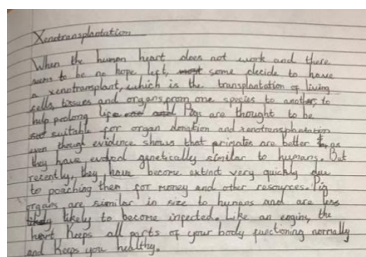 Xenotransplantation
When the human heart does not work and there
seems to be no hope left, some decide to have
a xenotransplant, which is the transplantation of living
cells, tissues and organs from one species to another, to
help prolong life. Pigs are thought to be
suitable for organ donation and xenotransplantation
even though evidence shows that primates are better as
they have evolved genetically similar to humans. But
recently they have become extinct very quickly due
to poaching them for money and other resources. Pig
organs are similar in size to humans and are less
likely to become infected. Like an engine, the
heart keeps all parts of your body functioning normally
and keeps you healthy.